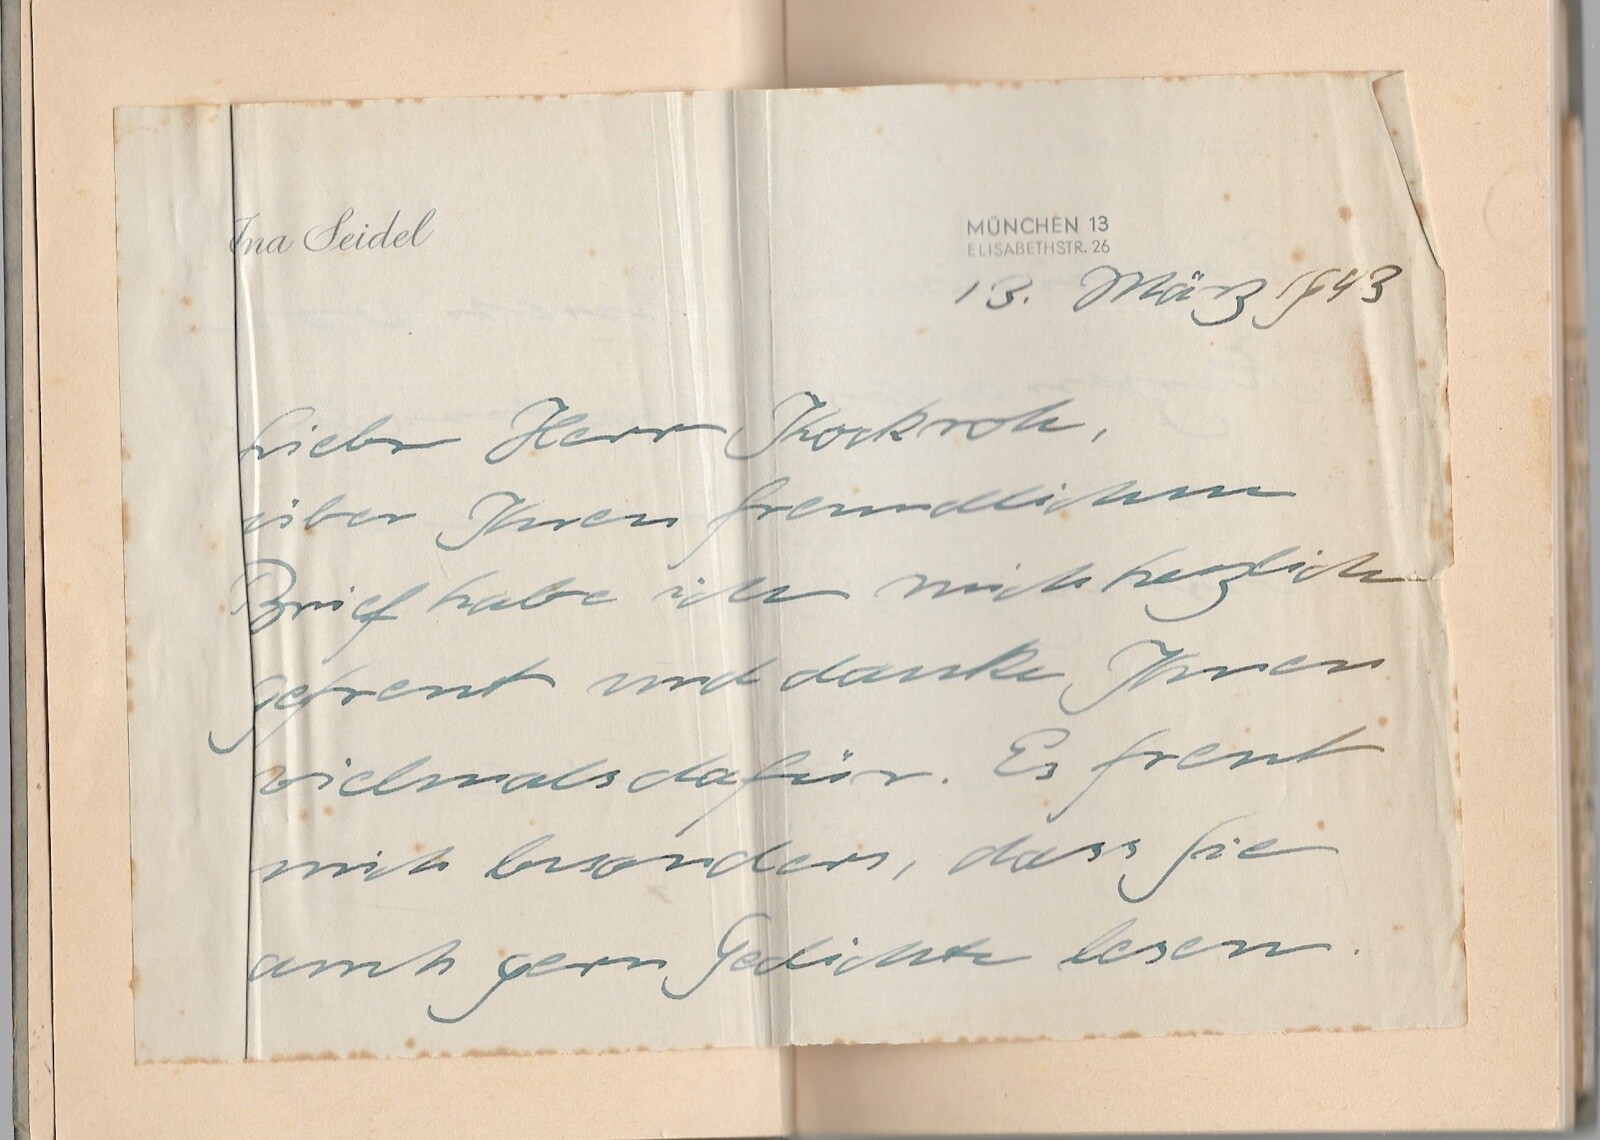 Ina Seidel
MÜNCHEN 13
ELISABETHSTR. 26
13. März 1943
Lieber Herr Kockroh,
über Ihren freundlichen
Brief habe ich mich herzlich
gefreut und danke Ihnen
vielmals dafür. Es freut
mich besonders, dass Sie
auch gern Gedichte lesen.